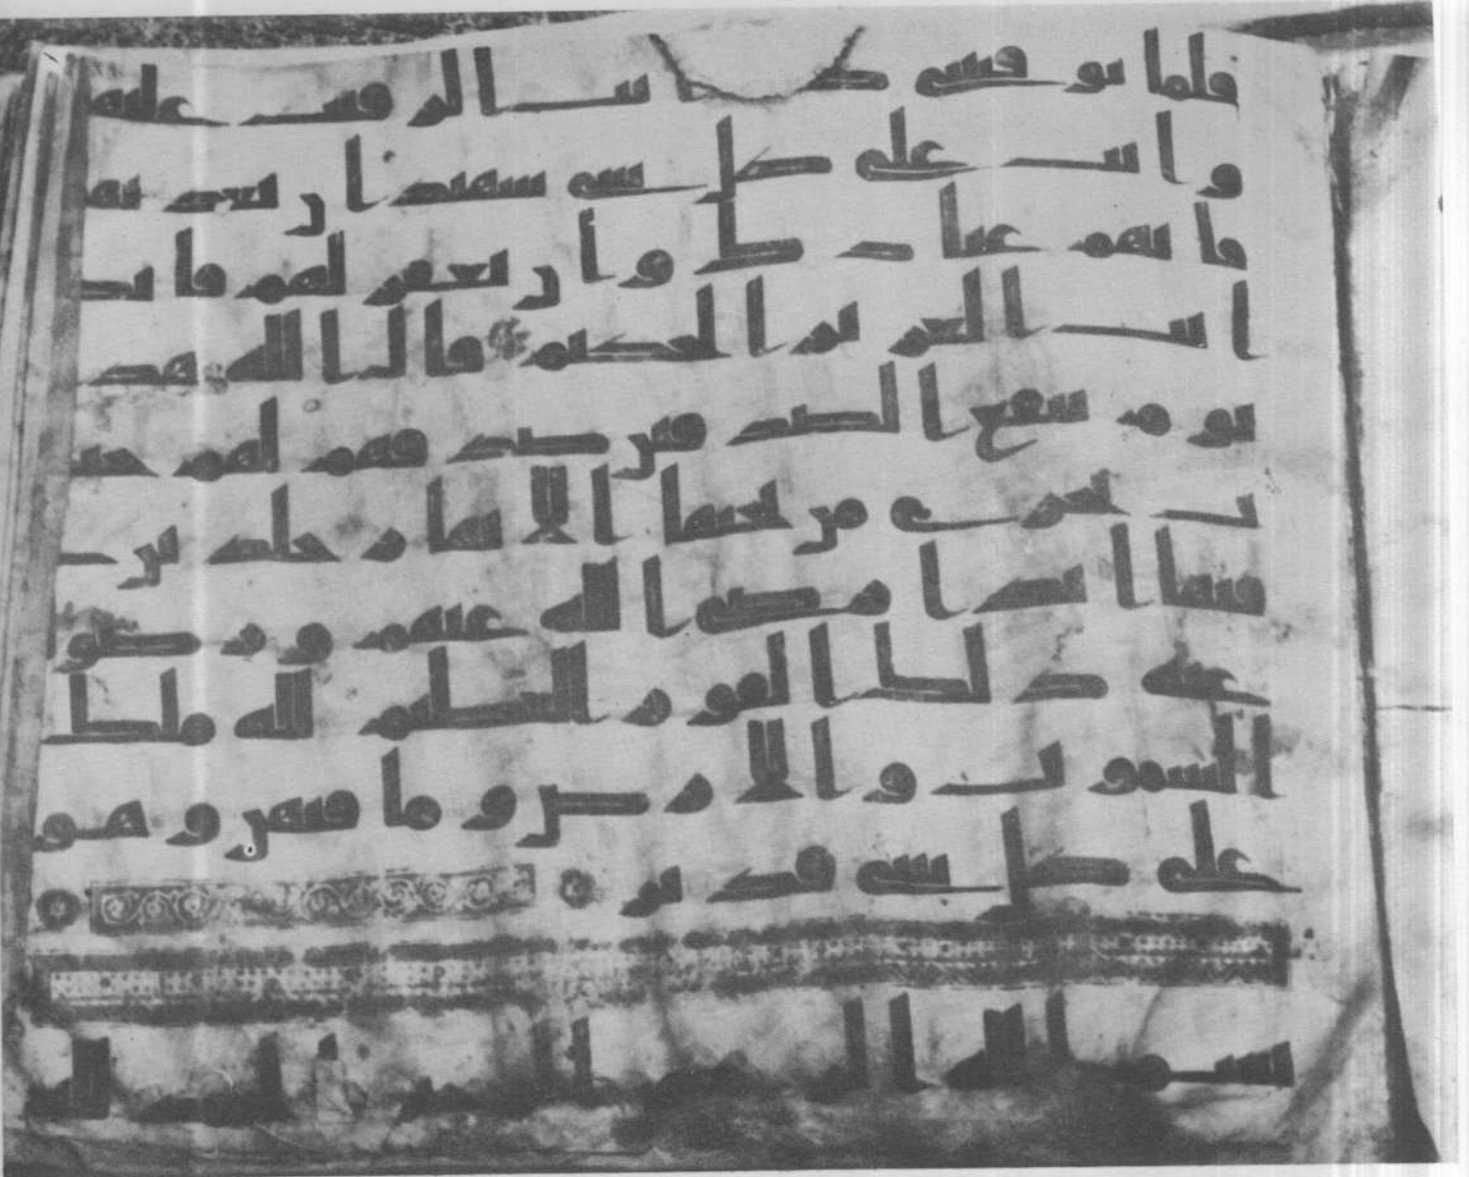 فلما توفيتنى كنت انت الرقيب عليهم
وانت على كل شى شهيد ان تعذبهم
فانهم عبادك وان تغفر لهم فانك
انت العزيز الحكيم قال الله هذا
يوم ينفع الصدقين صدقهم لهم جنـ
ـت تجرى من تحتها الانهار خلدين
فيها ابدا رضى الله عنهم ورضوا
عنه ذلك الفوز العظيم لله ملك
السموت والارض وما فيهن وهو
على كل شى قدير
بسم الله الر